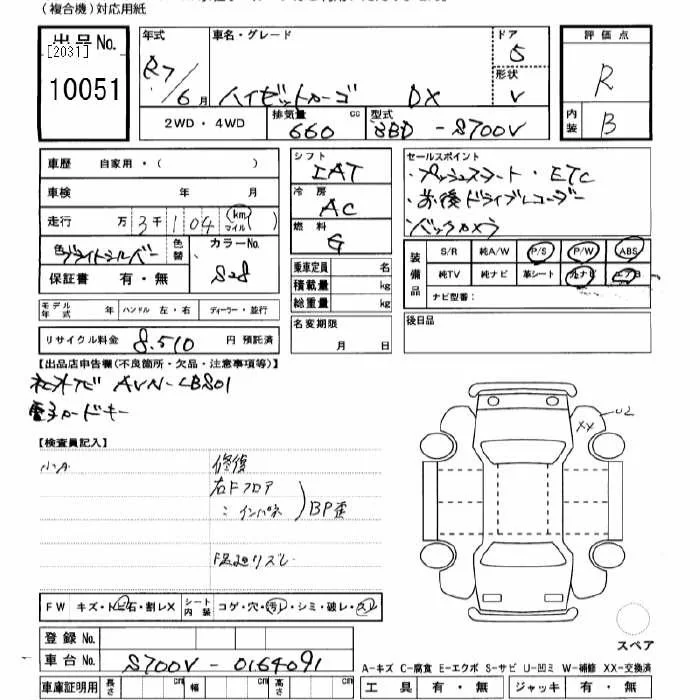 (複合機)対応用紙
出品No.
[2031]
10051
年式
R7/6月
車名・グレード
ハイゼットカーゴ DX
ドア
5
形状
V
評価点
R
内装
B
2WD・4WD
排気量 cc
660
型式
3BD-S700V
車歴 自家用・( )
車検 年 月
走行 万 3千 104 (km) マイル
色 ブライトシルバー
色替
カラーNo.
S28
保証書 有・無
シフト
IAT
冷房
AC
燃料
G
セールスポイント
・プッシュスタート・ETC
・前後ドライブレコーダー
・バックカメラ
装備品
S/R 純A/W P/S P/W ABS
純TV 純ナビ 革シート 社ナビ エアB
ナビ型番:
乗車定員 名
積載量 kg
総重量 kg
モデル年式 年 ハンドル 左・右 ディーラー・並行
名変期限
月 日
後日品
リサイクル料金 8,510 円 預託済
【出品店申告欄(不良箇所・欠品・注意事項等)】
社外ナビ AVN-LBS01
電子カードキー
【検査員記入】
修復
右Fフロア
: インパネ
BP歪
U2
XX
FW キズ・トビ石・割レX シート内装 コゲ・穴・汚レ・シミ・破レ・スレ
登録No.
車台No. S700V-0164091
車庫証明用 長さ cm 幅 cm 高さ cm
スペア
A-キズ C-腐食 E-エクボ S-サビ U-凹ミ W-補修 XX-交換済
工具 有・無 ジャッキ 有・無